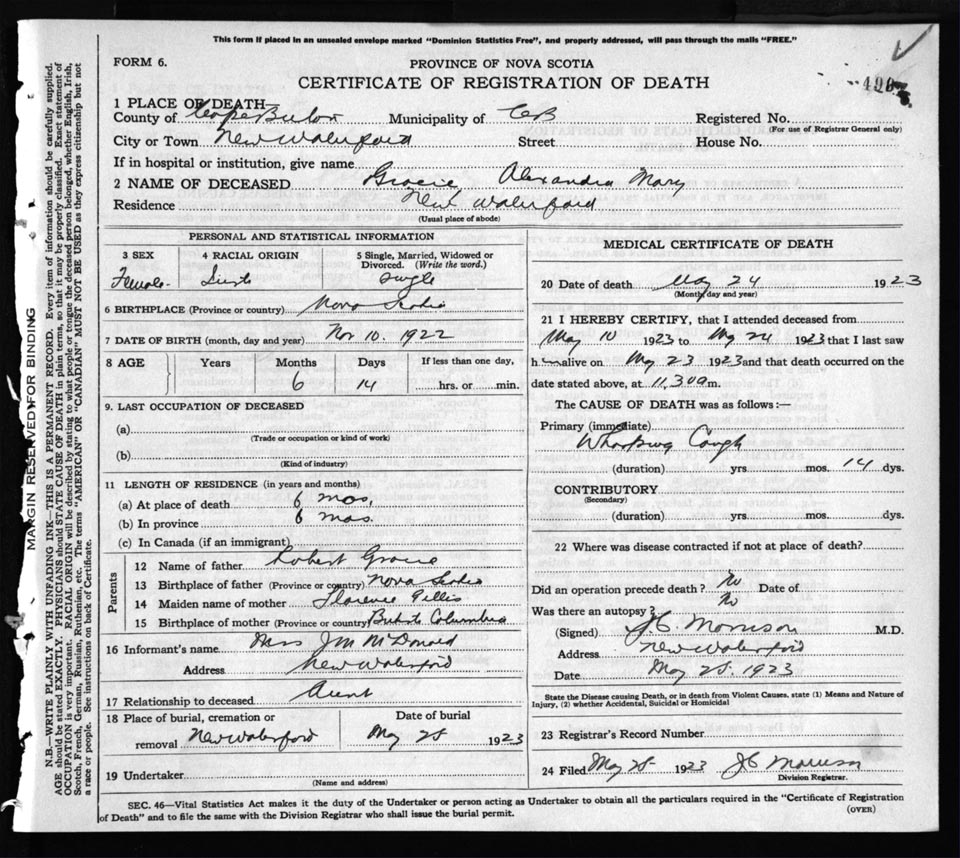 This form if placed in an unsealed envelope marked "Dominion Statistics Free", and properly addressed, will pass through the mails "FREE."
FORM 6.
PROVINCE OF NOVA SCOTIA
CERTIFICATE OF REGISTRATION OF DEATH
1 PLACE OF DEATH
County of Cape Breton Municipality of CB Registered No.
(For use of Registrar General only)
City or Town New Waterford Street House No.
If in hospital or institution, give name
2 NAME OF DECEASED Gracie Alexandra Mary
Residence New Waterford
(Usual place of abode)
PERSONAL AND STATISTICAL INFORMATION
3 SEX 4 RACIAL ORIGIN 5 Single, Married, Widowed or Divorced. (Write the word.)
Female Single
6 BIRTHPLACE (Province or country) Nova Scotia
7 DATE OF BIRTH (month, day and year) Nov 10. 1922
8 AGE Years Months Days If less than one day,
6 14 hrs. or min.
9. LAST OCCUPATION OF DECEASED
(a)
(Trade or occupation or kind of work)
(b)
(Kind of industry)
11 LENGTH OF RESIDENCE (in years and months)
(a) At place of death 6 mos.
(b) In province 6 mos.
(c) In Canada (if an immigrant)
Parents
12 Name of father Robert Gracie
13 Birthplace of father (Province or country) Nova Scotia
14 Maiden name of mother Florence Gillis
15 Birthplace of mother (Province or country) British Columbia
16 Informant's name J M McDonald
Address New Waterford
17 Relationship to deceased Aunt
18 Place of burial, cremation or removal New Waterford
Date of burial
May 25 1923
19 Undertaker
(Name and address)
MEDICAL CERTIFICATE OF DEATH
20 Date of death May 24 1923
(Month, day and year)
21 I HEREBY CERTIFY, that I attended deceased from
May 10 1923 to May 24 1923 that I last saw
h alive on May 23 1923 and that death occurred on the
date stated above, at 11,30 m.
The CAUSE OF DEATH was as follows:—
Primary (immediate)
Whooping Cough
(duration) yrs. mos. 14 dys.
CONTRIBUTORY
(Secondary)
(duration) yrs. mos. dys.
22 Where was disease contracted if not at place of death?
Did an operation precede death? No Date of
Was there an autopsy? No
(Signed) J.C. Morrison M.D.
Address New Waterford
Date May 25. 1923
State the Disease causing Death, or in death from Violent Causes, state (1) Means and Nature of Injury, (2) whether Accidental, Suicidal or Homicidal
23 Registrar's Record Number
24 Filed May 25. 1923 J C Morrison
Division Registrar.
SEC. 46—Vital Statistics Act makes it the duty of the Undertaker or person acting as Undertaker to obtain all the particulars required in the "Certificate of Registration
of Death" and to file the same with the Division Registrar who shall issue the burial permit.
(OVER)
MARGIN RESERVED FOR BINDING
N.B.—WRITE PLAINLY WITH UNFADING INK—THIS IS A PERMANENT RECORD. Every item of information should be carefully supplied.
AGE should be stated EXACTLY. PHYSICIANS should STATE CAUSE OF DEATH in plain terms, so that it may be properly classified. Exact statement of
OCCUPATION is very important. RACIAL ORIGIN will be described by stating to what people or tongue the deceased person belonged, whether English, Irish,
Scotch, French, German, Russian, Ruthenian, etc. The terms "AMERICAN" or "CANADIAN" MUST NOT BE USED as they express citizenship but not
a race or people. See instructions on back of Certificate.